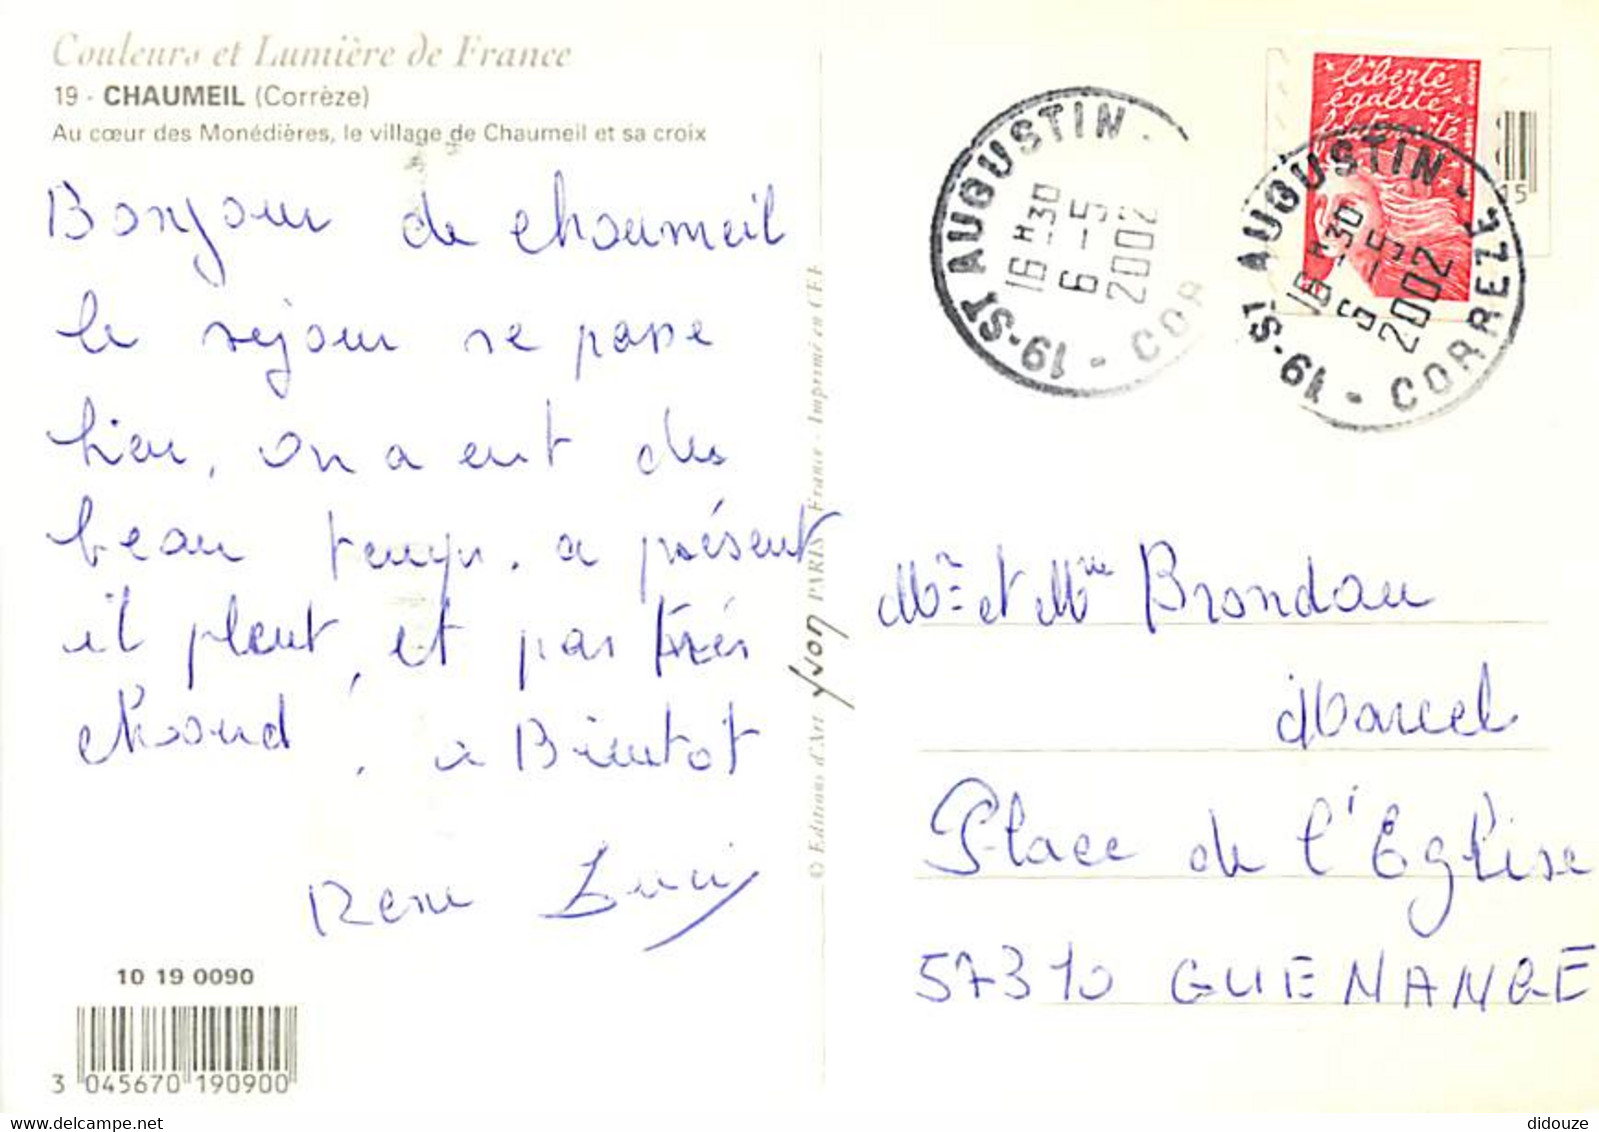 Couleurs et Lumière de France
19 - CHAUMEIL (Corrèze)
Au cœur des Monédières, le village de Chaumeil et sa croix
Bonjour de chaumeil
le séjour se passe
bien, on a eut du
beau temps. a présent
il pleut, et pas très
chaud, a Bientot
René
10 19 0090
3 045670 190900
© Editions d'Art yvon PARIS France - Imprimé en CEE
liberté
égalité
fraternité
15
19-ST AUGUSTIN - COR
16 H30
6-5
2002
19-ST AUGUSTIN - CORREZE
16 H30
6-5
2002
Mr et Mme Brondau
Marcel
Place de l'Eglise
57310 GUENANGE
didouze